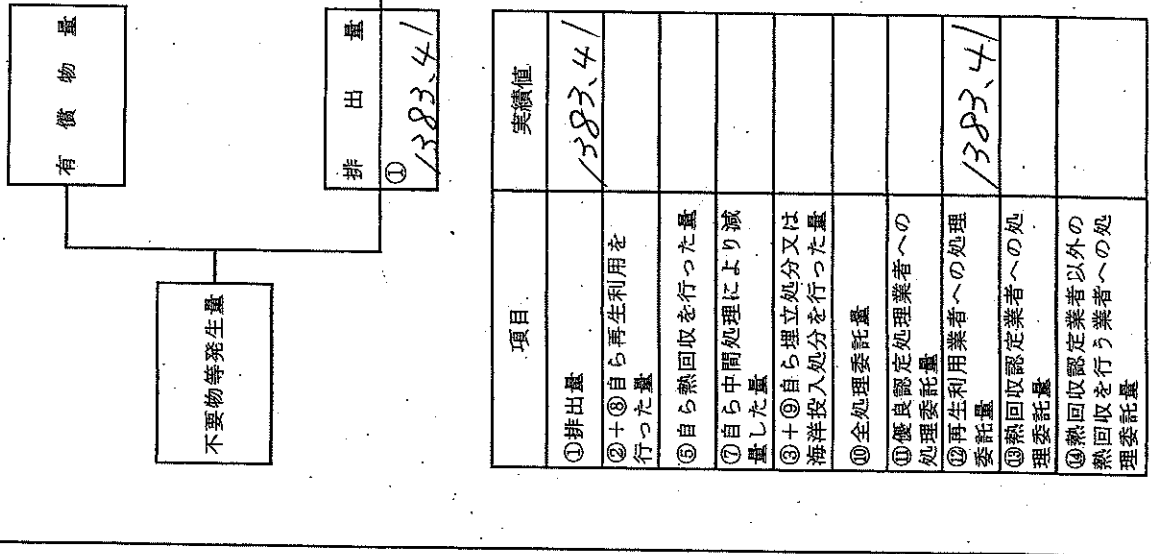 有償物量
不要物等発生量
排出量
①
1383.41
項目
実績値
①排出量
1383.41
②+⑧自ら再生利用を
行った量
⑤自ら熱回収を行った量
⑦自ら中間処理により減
量した量
③+⑨自ら埋立処分又は
海洋投入処分を行った量
⑩全処理委託量
⑪優良認定処理業者への
処理委託量
⑫再生利用業者への処理
委託量
1383.41
⑬熱回収認定業者への処
理委託量
⑭熱回収認定業者以外の
熱回収を行う業者への処
理委託量